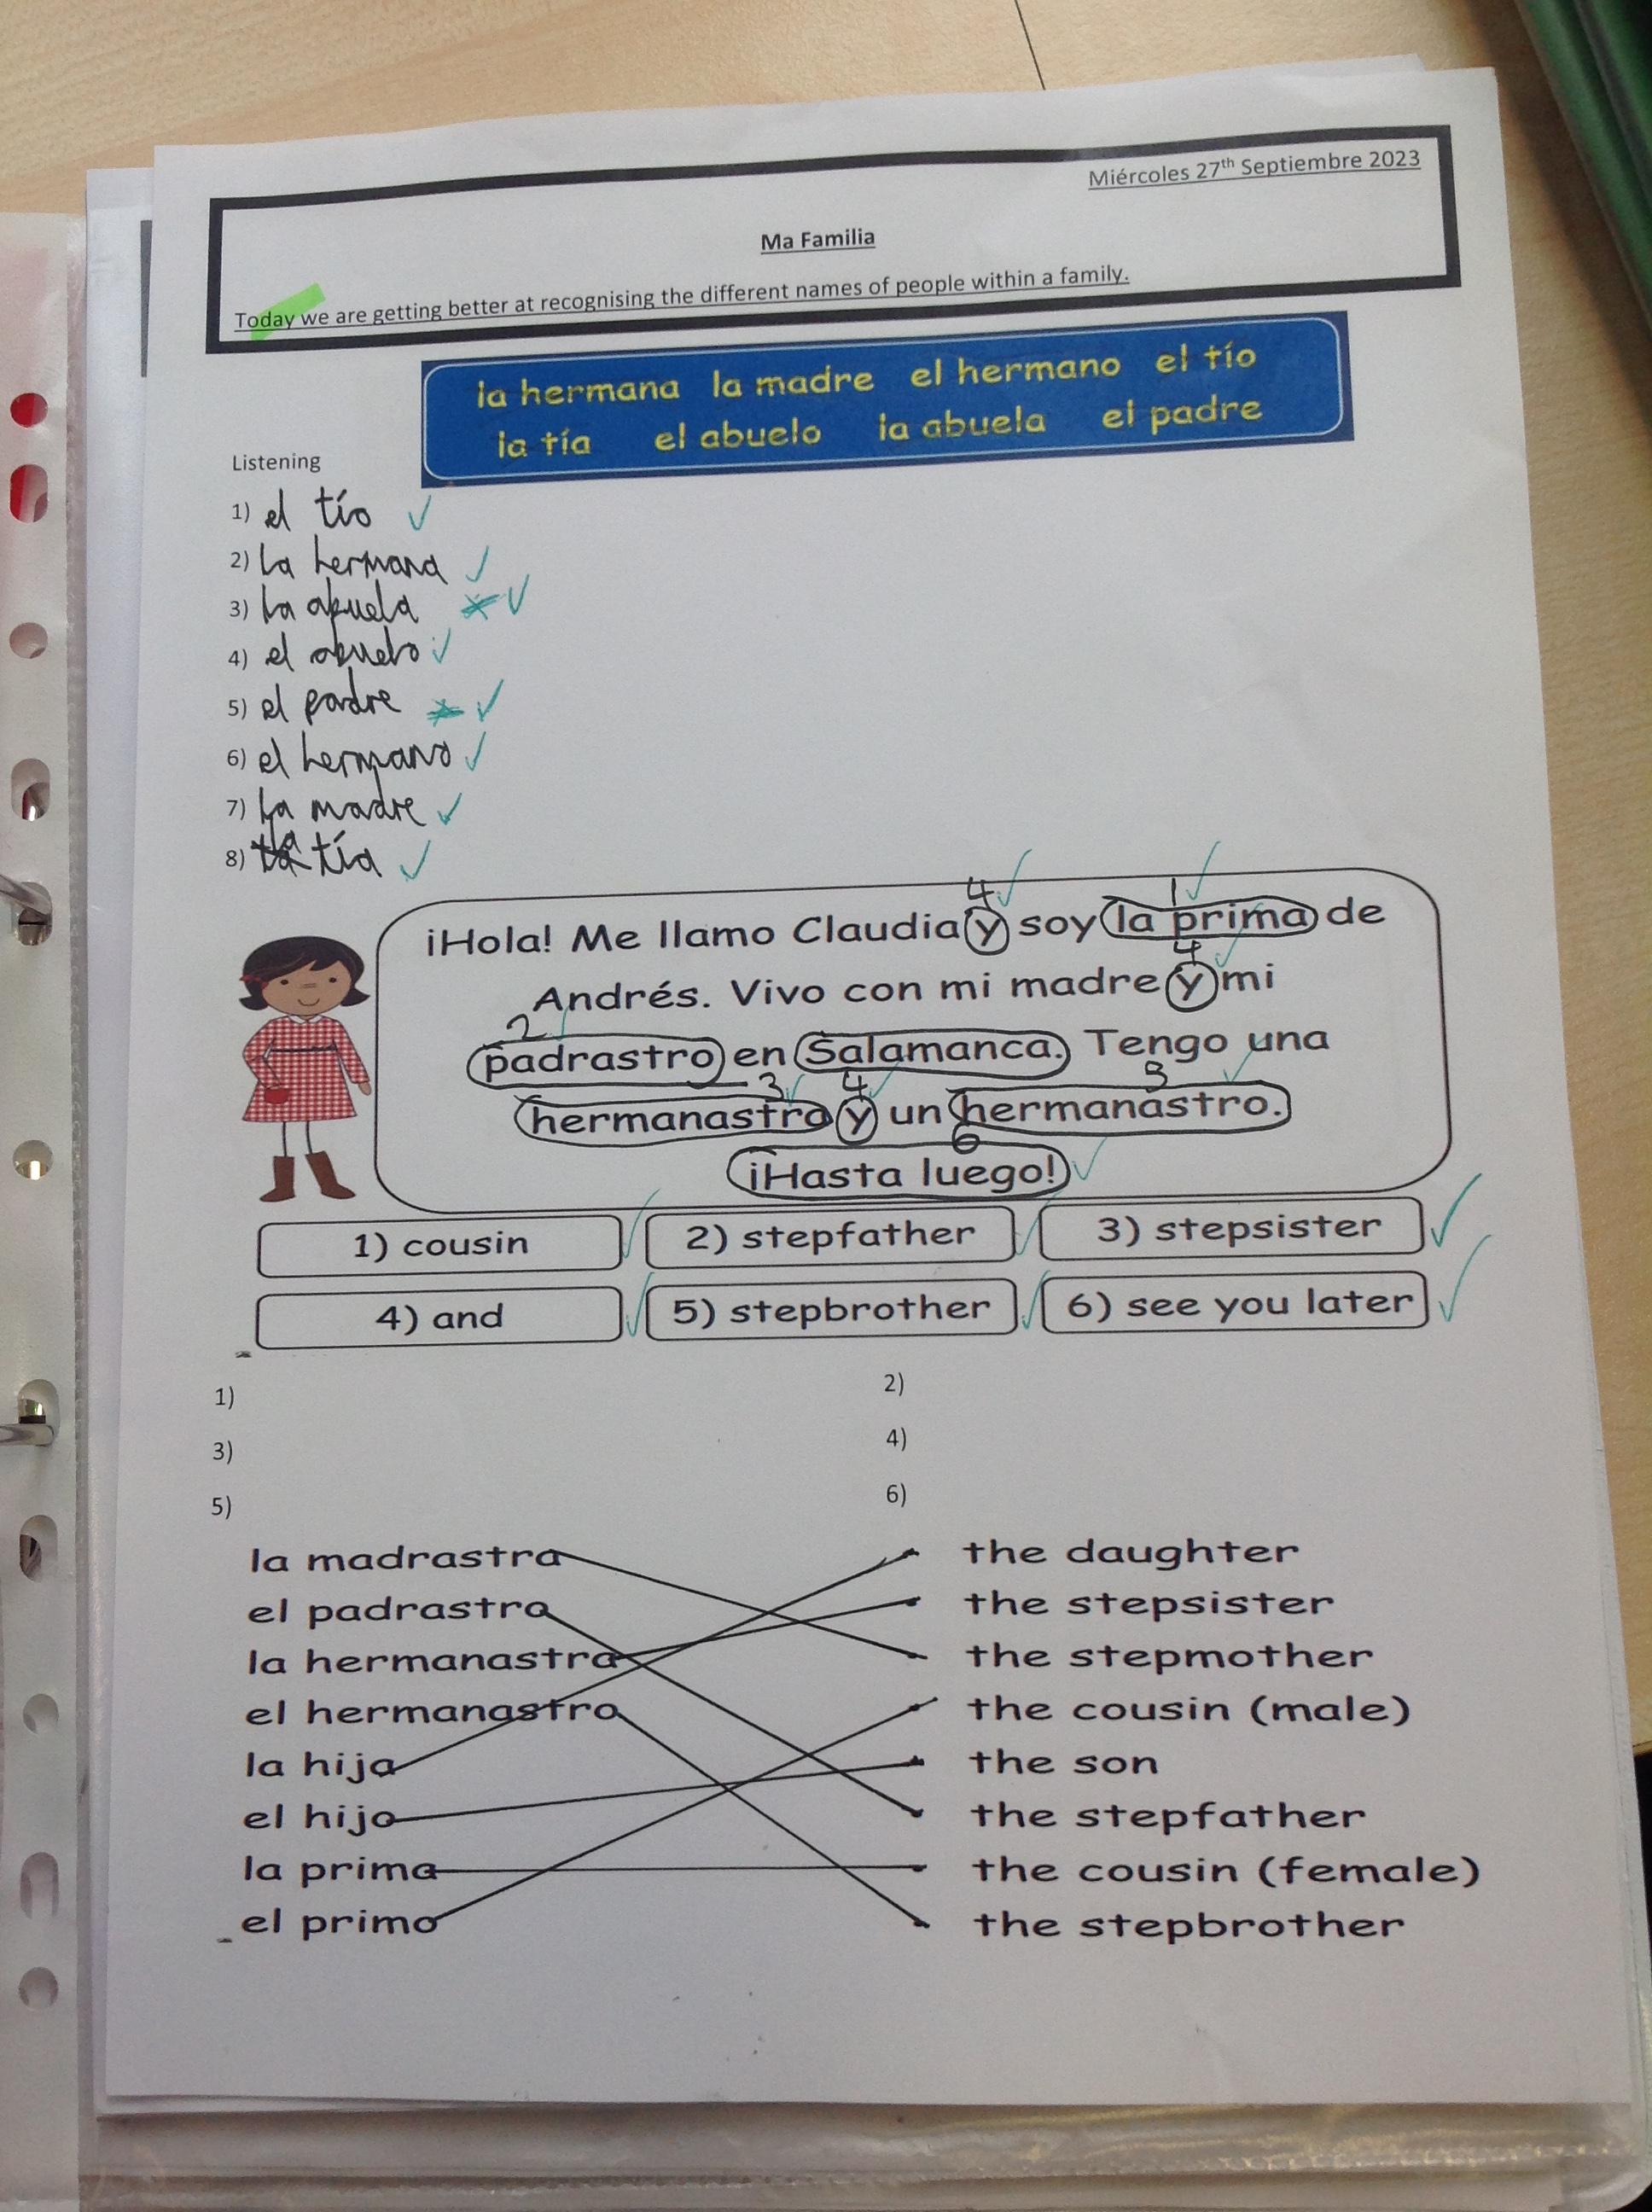 Miércoles 27th Septiembre 2023
Ma Familia
Today we are getting better at recognising the different names of people within a family.
la hermana la madre el hermano el tío
la tía el abuelo la abuela el padre
Listening
1) el tío
2) la hermana
3) la abuela
4) el abuelo
5) el padre
6) el hermano
7) la madre
8) la tía
4 1
¡Hola! Me llamo Claudia y soy la prima de
4
Andrés. Vivo con mi madre y mi
2
padrastro en Salamanca. Tengo una
3 4 5
hermanastra y un hermanastro.
6
¡Hasta luego!
1) cousin 2) stepfather 3) stepsister
4) and 5) stepbrother 6) see you later
1) 2)
3) 4)
5) 6)
la madrastra the daughter
el padrastro the stepsister
la hermanastra the stepmother
el hermanastro the cousin (male)
la hija the son
el hijo the stepfather
la prima the cousin (female)
el primo the stepbrother